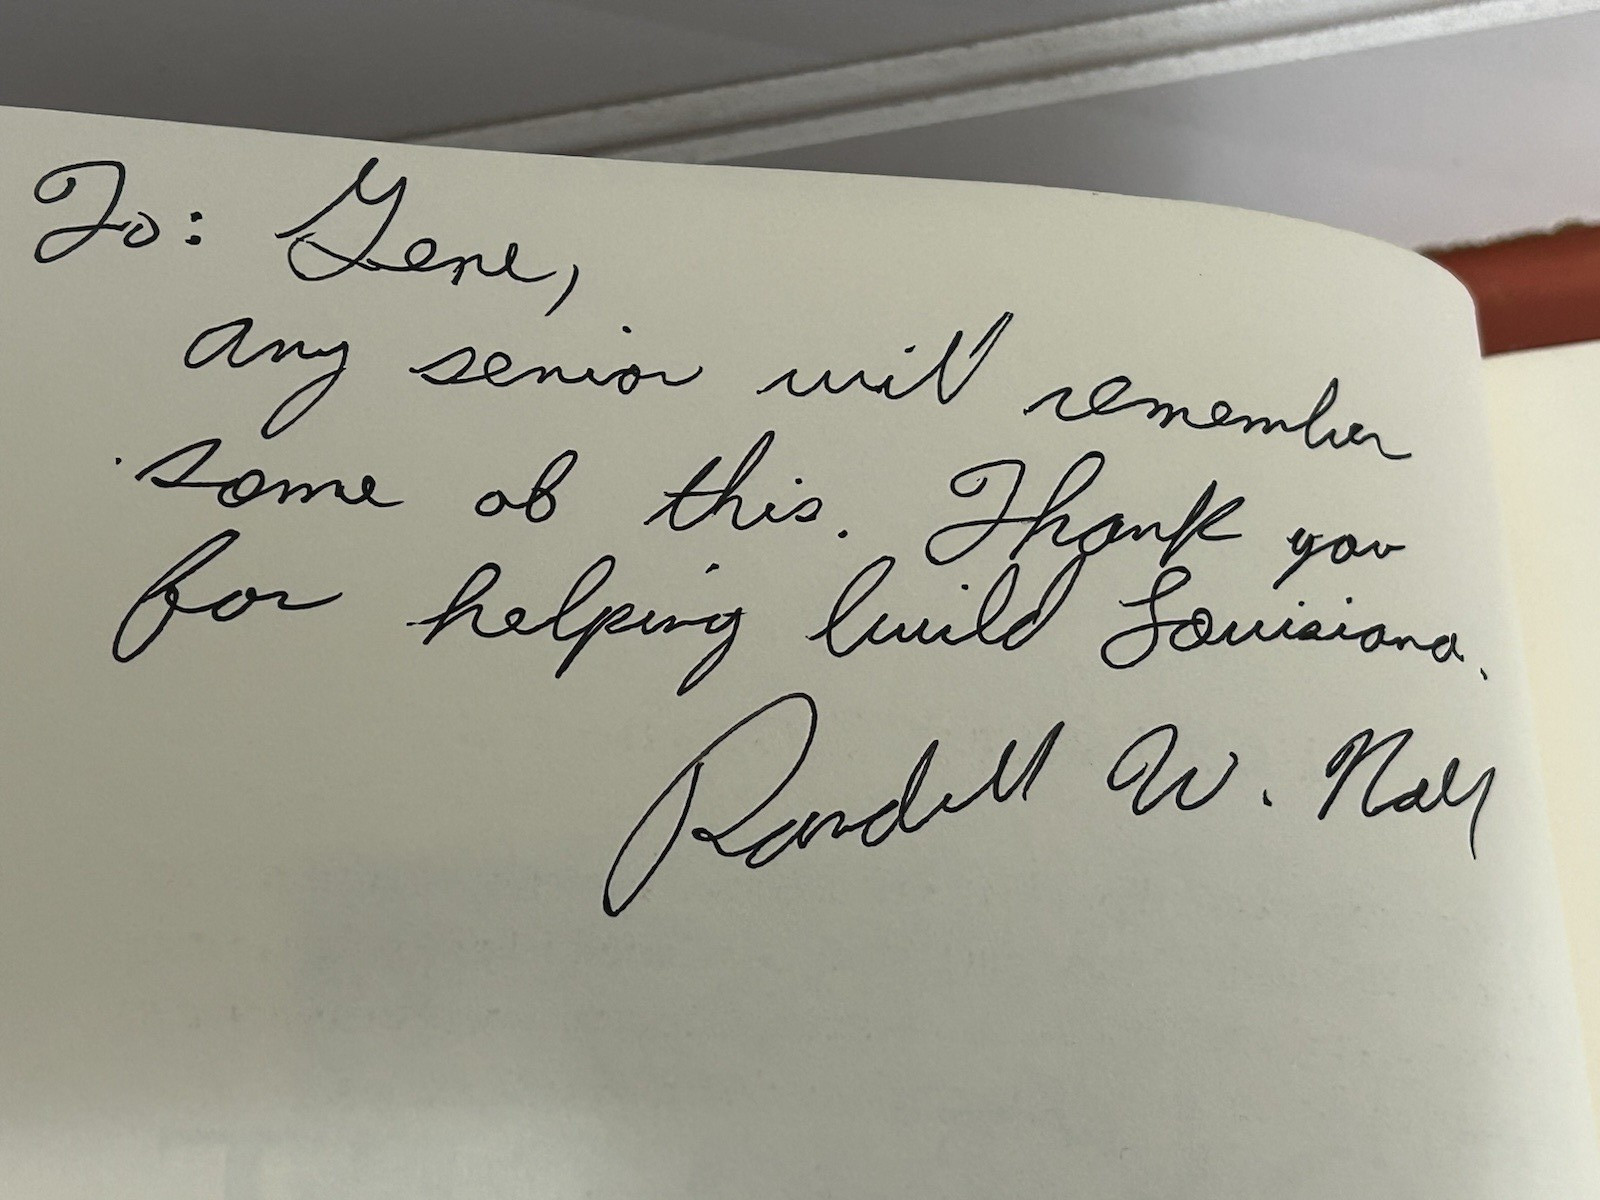 To: Gene,
any senior will remember
some of this. Thank you
for helping build Louisiana.
Randell W. Nall